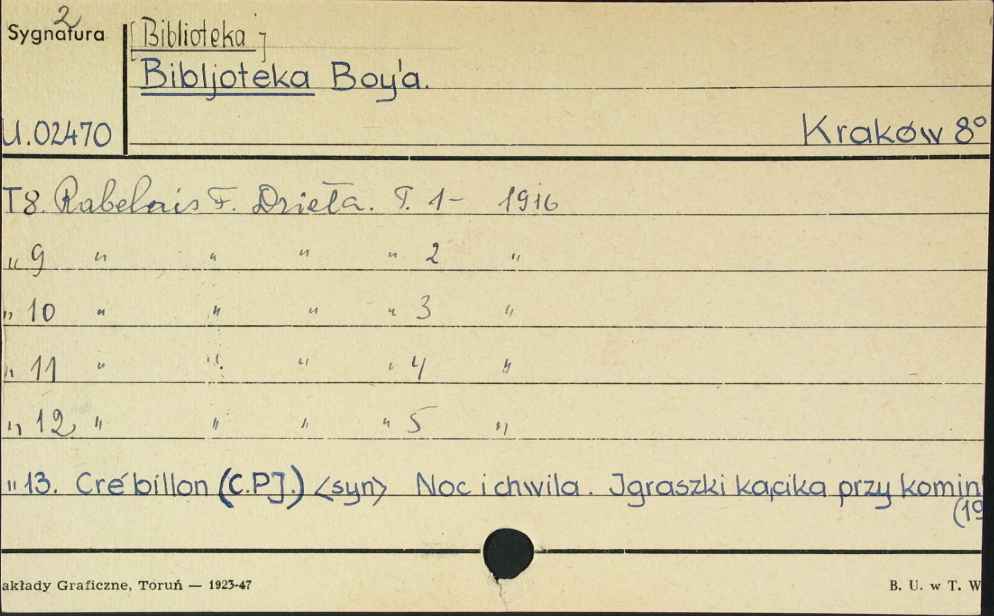 2
Sygnatura
[Biblioteka]
Bibljoteka Boy'a.
U.02470
Kraków 8°
T8. Rabelais F. Dzieła. T. 1- 1916
„ 9 „ „ „ „ 2 „
„ 10 „ „ „ „ 3 „
„ 11 „ „ „ „ 4 „
„ 12 „ „ „ „ 5 „
„ 13. Crébillon (C.PJ.) <syn> Noc i chwila. Jgraszki kącika przy komin
(19
akłady Graficzne, Toruń — 1923-47
B. U. w T. W